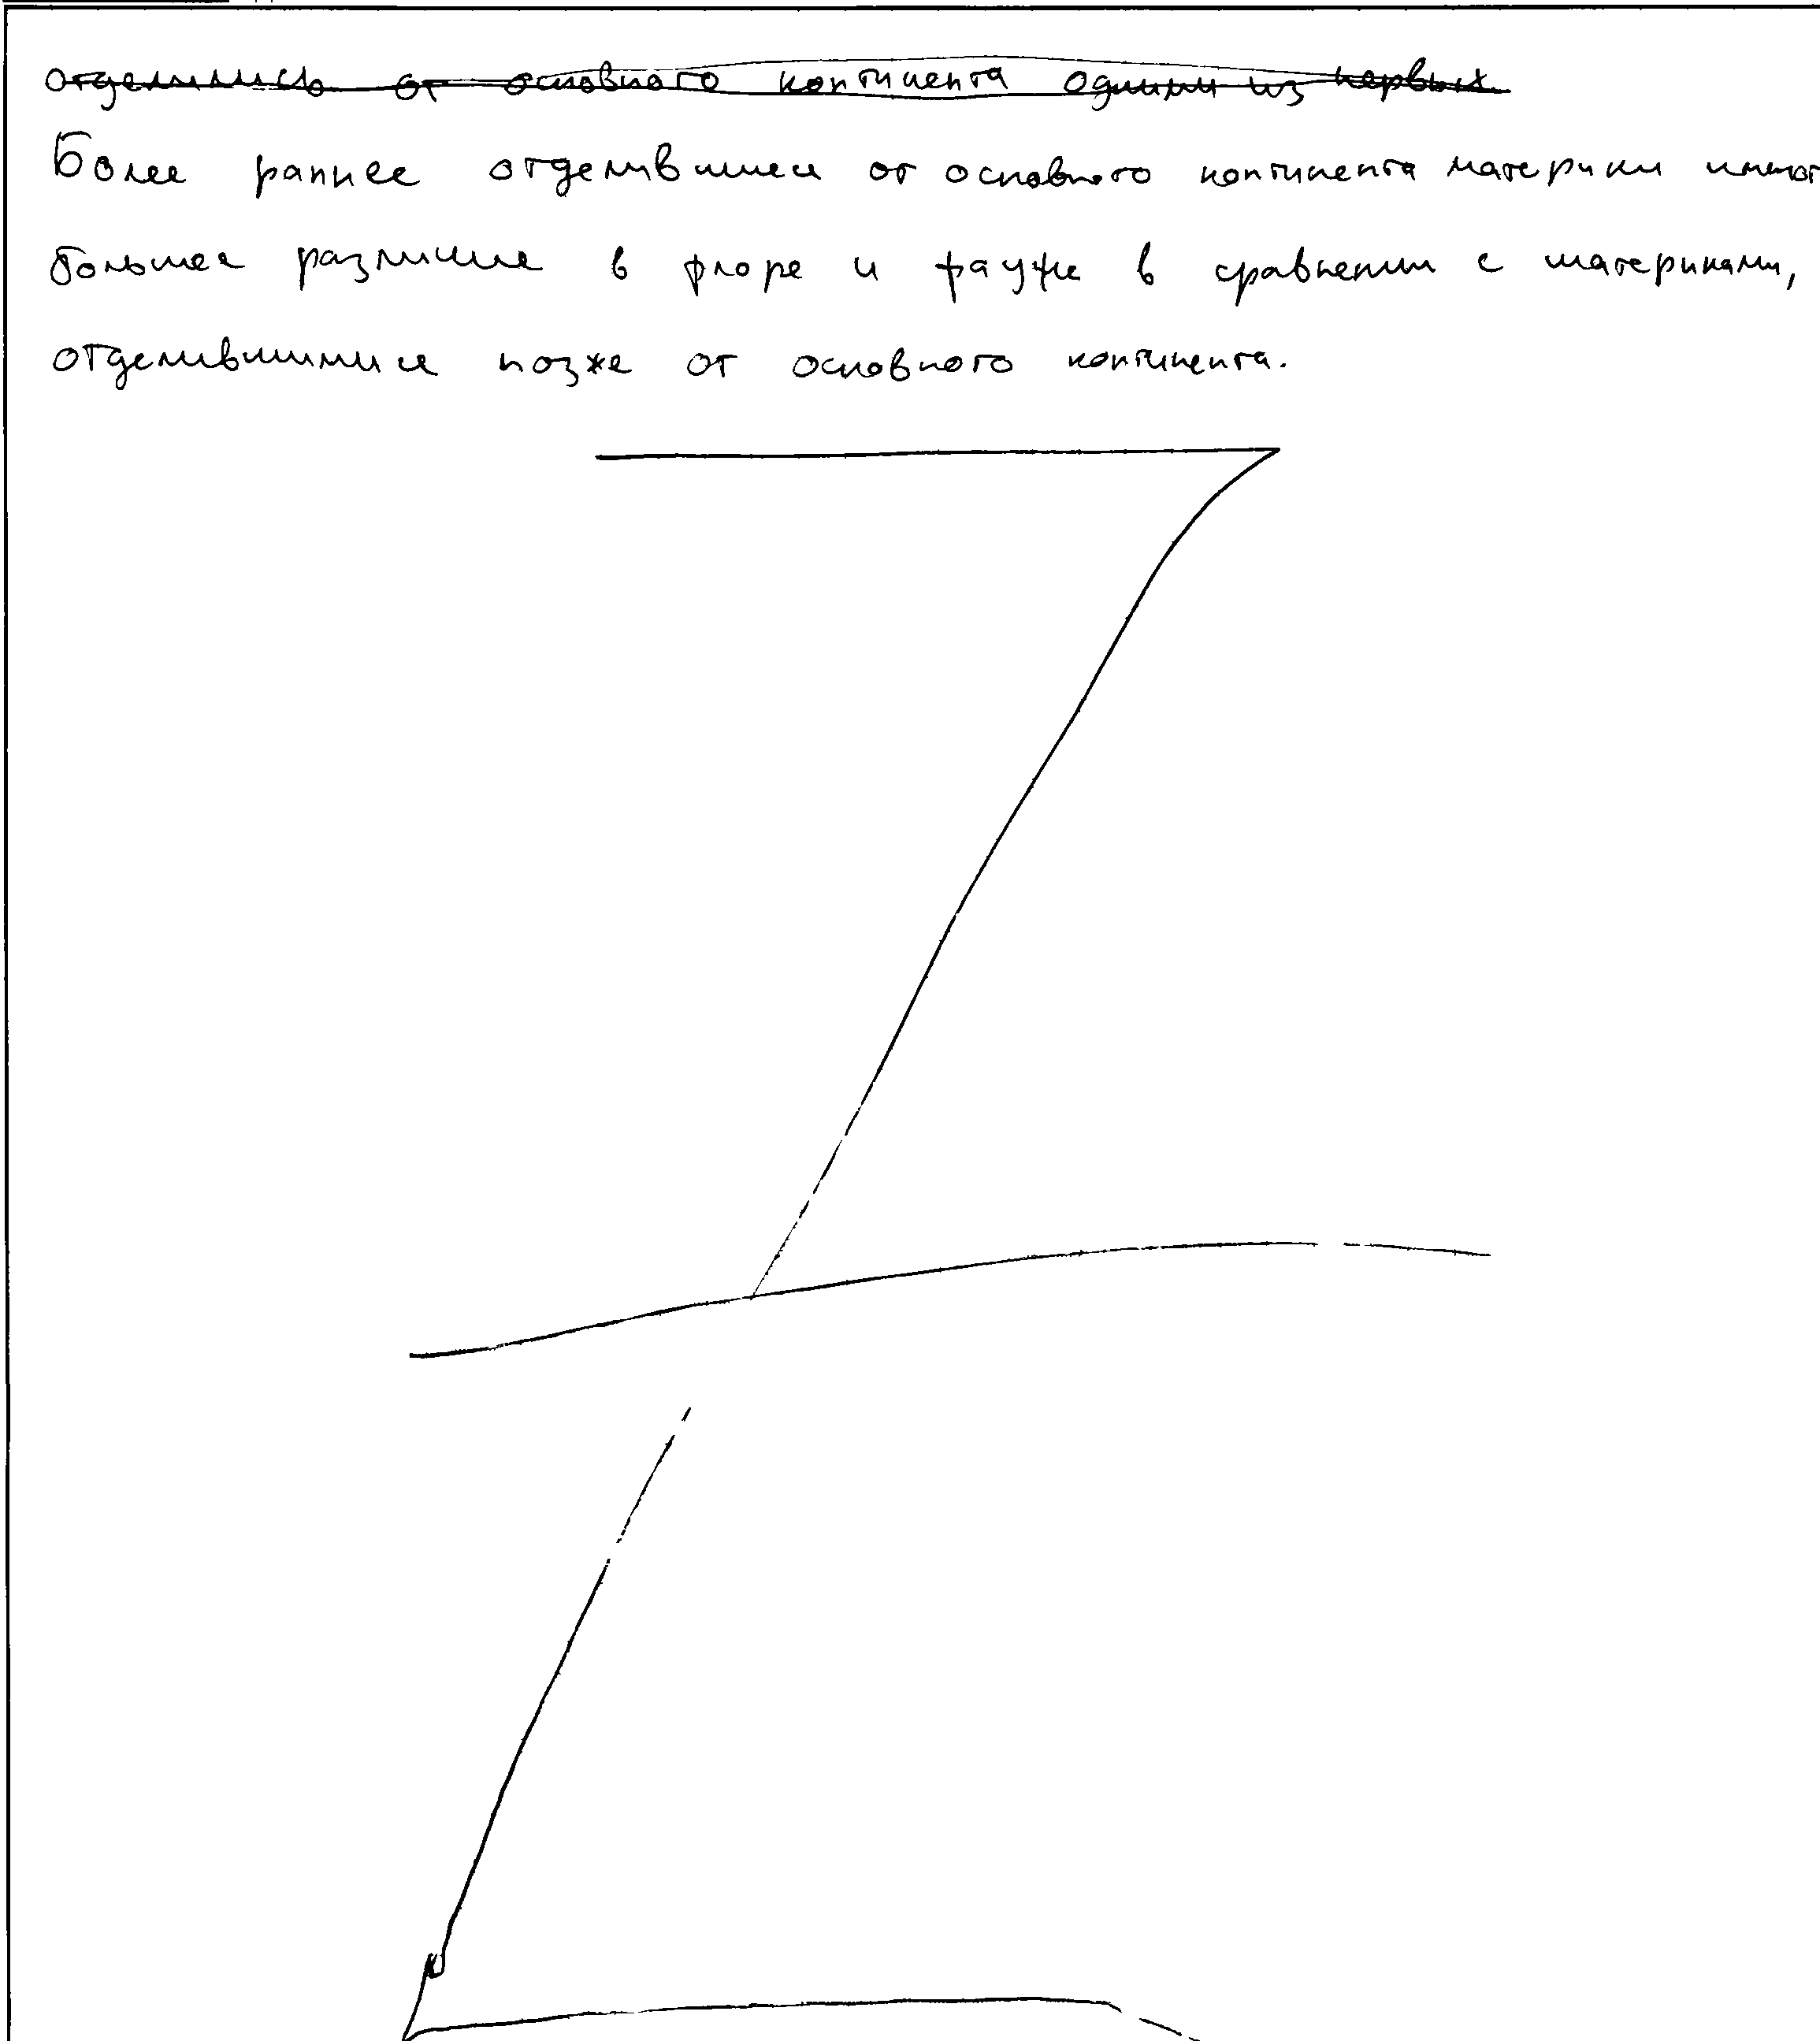 отделились от основного континента одними из первых.
Более раннее отделившиеся от основного континента материки имеют
большее различие в флоре и фауне в сравнении с материками,
отделившимися позже от основного континента.